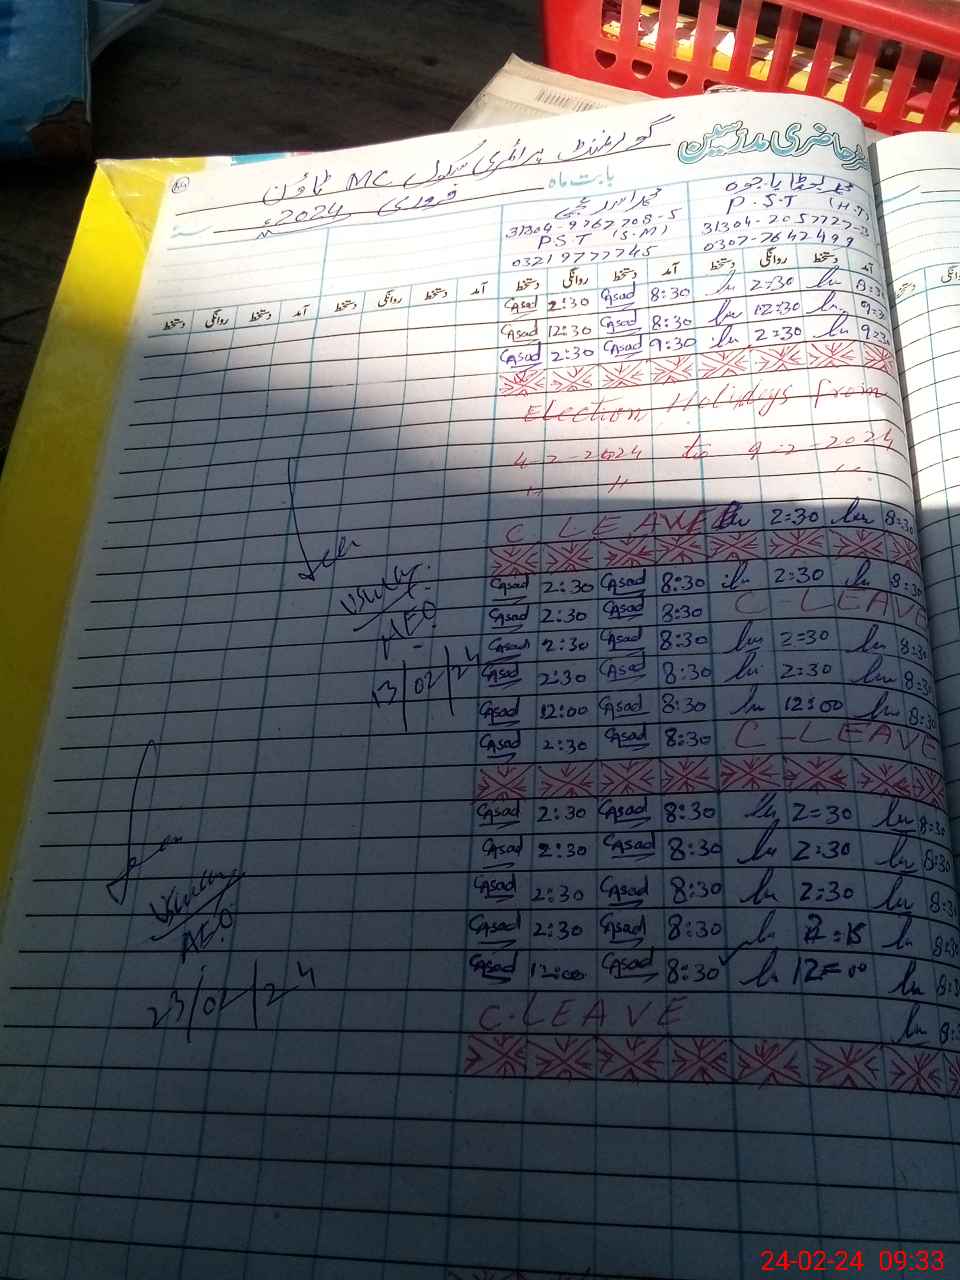 حاضری مدارسین
گورنمنٹ پرائمری سکول MC ٹاؤن
بابت ماہ
فروری 2024
P.S.T (H.T)
31304-9767708-5
31304-2057727-3
P.S.T (S.M)
03219777745
0307-7642499
آمد دستخط روانگی دستخط آمد دستخط روانگی دستخط آمد دستخط روانگی دستخط آمد دستخط روانگی دستخط
8:30 2:30 8:30 Asad 2:30 Asad
9:3 12:30 8:30 Asad 12:30 Asad
9:30 2:30 9:30 Asad 2:30 Asad
Election Holidays from
4-2-2024 to 9-2-2024
" " "
C LEAVE 2:30 8:30
Asad 2:30 Asad 8:30 2:30 8:30
Asad 2:30 Asad 8:30 C-LEAVE
Asad 2:30 Asad 8:30 2:30 8:30
Asad 2:30 Asad 8:30 2:30 8:30
Asad 12:00 Asad 8:30 12:00 8:30
Asad 2:30 Asad 8:30 C-LEAVE
Asad 2:30 Asad 8:30 2=30 8=30
Asad 2:30 Asad 8:30 2:30 8:30
Asad 2:30 Asad 8:30 2:30 8:3
Asad 2:30 Asad 8:30 8:30
Asad 12:00 Asad 8:30 12=00 8:3
C.LEAVE 8:3
Seen
AEO
13/02/24
Seen
AEO
23/02/24
24-02-24 09:33